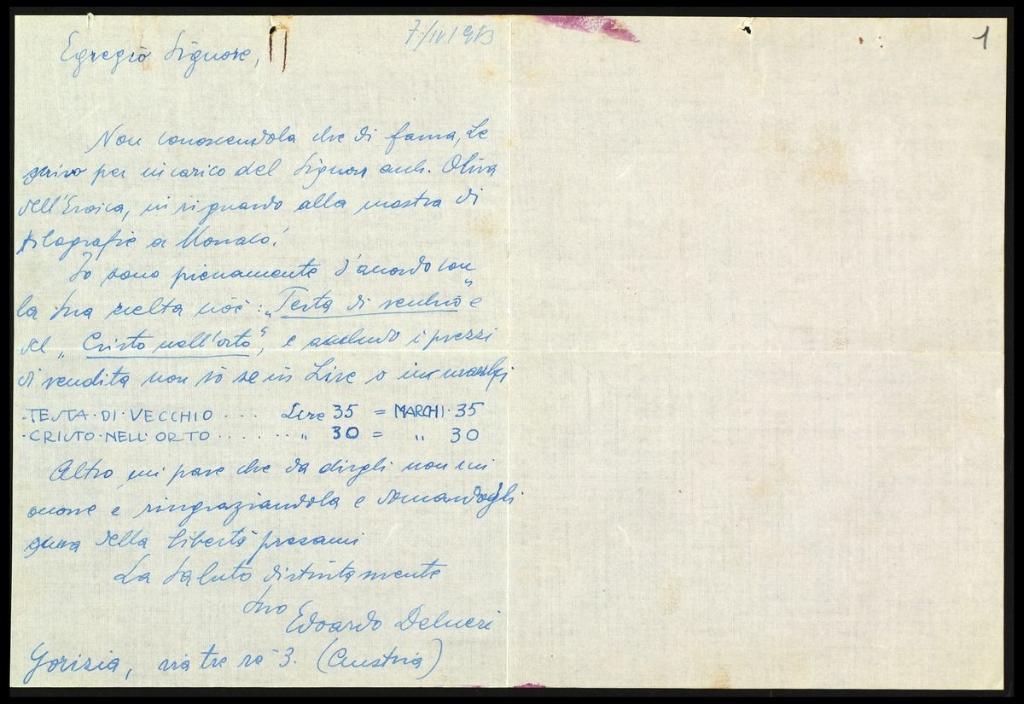 7/IV/1913
1
Egregio Signore,
Non conoscendola che di fama, Le
scrivo per incarico del Signor arch. Oliva
dell'Eroica, in riguardo alla mostra di
xilografie a Monaco.
Io sono pienamente d'accordo con
la sua scelta cioè: „Testa di vecchio" e
del „Cristo nell'orto", e accludo i prezzi
di vendita non so se in Lire o in marchi
·TESTA·DI·VECCHIO .... Lire 35 = MARCHI·35
·CRISTO·NELL'ORTO ...... „ 30 = „ 30
Altro mi pare che da dirgli non mi
occorre e ringraziandola e domandogli
scusa della libertà presami
La Saluto distintamente
Suo
Edoardo Delneri
Gorizia, via tre re 3. (Austria)